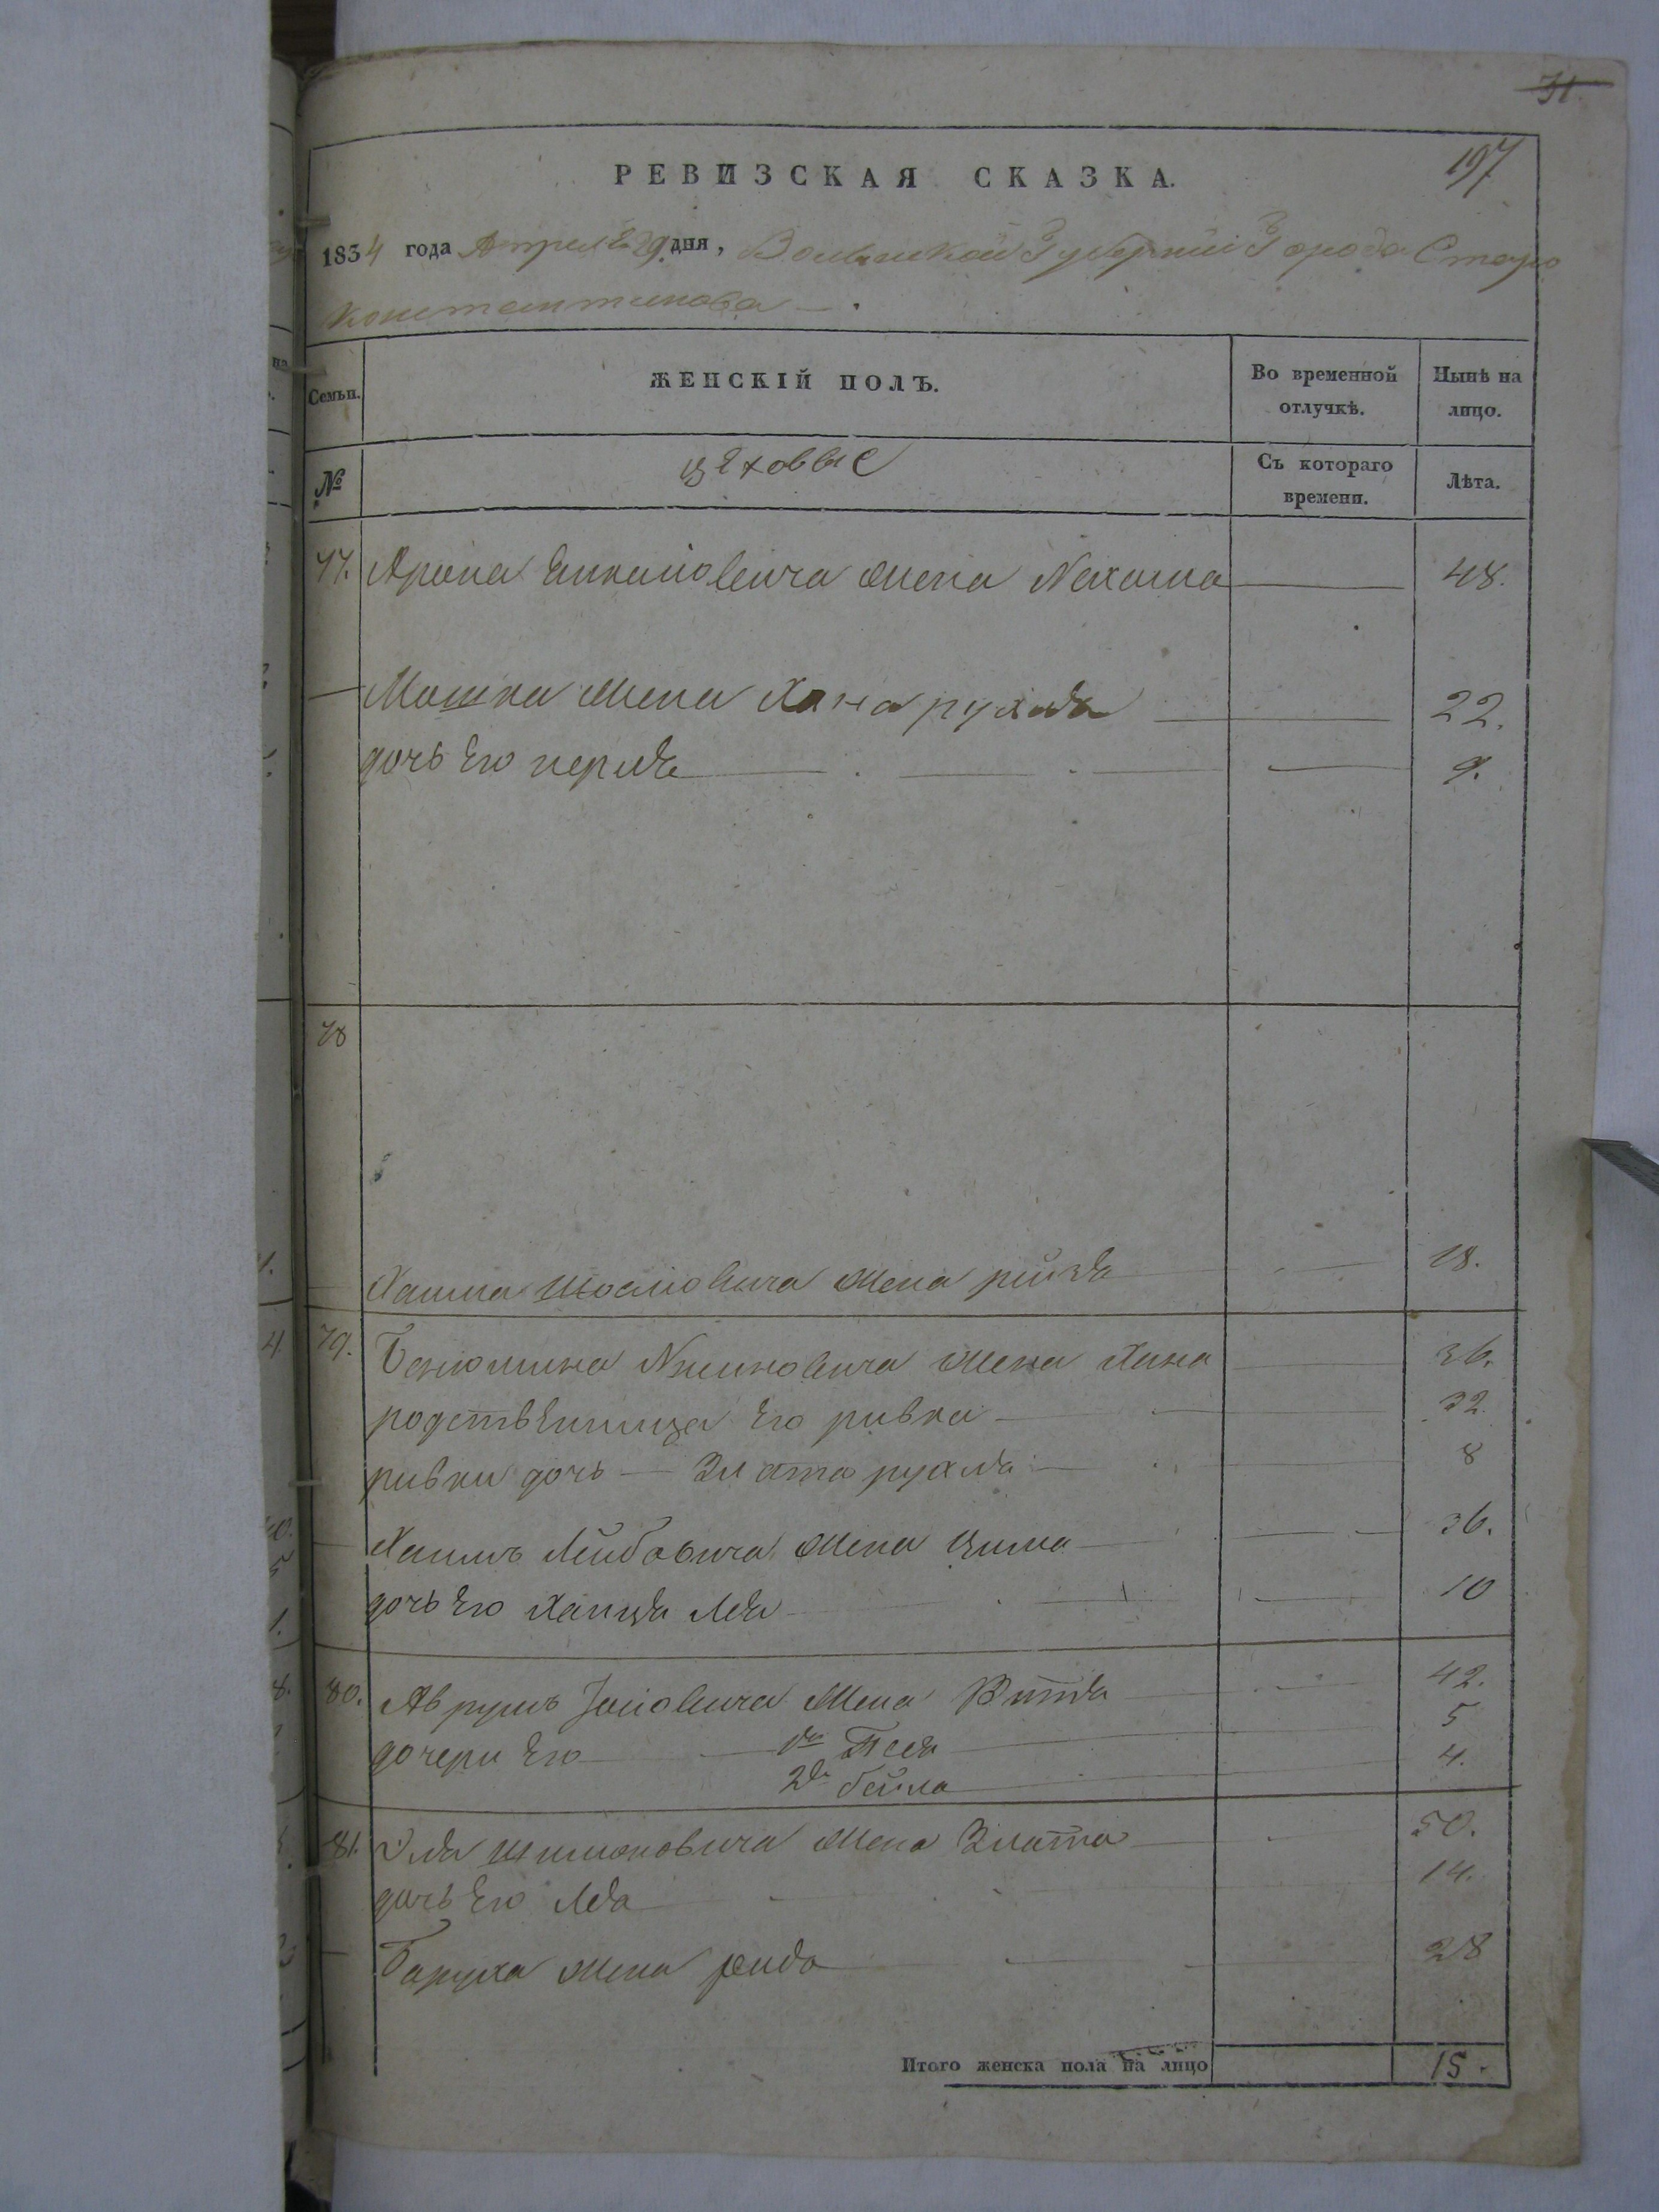 31.
197
РЕВИЗСКАЯ СКАЗКА.
1834 года Апреля 29 дня, Волынской Губернии Города Старо
константинова
Семьи. ЖЕНСКІЙ ПОЛЪ. Во временной отлучкѣ. Нынѣ на лицо.
№ цеховые Съ котораго времени. Лѣта.
77. Арона жена Нехама 48.
Мошка жена Хана рухля 22.
дочь Его перля 9.
78
Хаима жена рейзя 18.
79. Бениомина жена Хана 36.
родственница Его ривка 32.
ривки дочь Злата рухля 8
Хаимъ Лейбовича жена Цима 36.
дочь Его Хапця Лея 10
80. Аврумъ жена Витя 42.
дочери Его 1я Песя 5
2я бейла 4.
81. Эля Шимоновича жена Злата 50.
дочь Его Лея 14.
Баруха жена рейда 28
Итого женска пола на лицо 15.